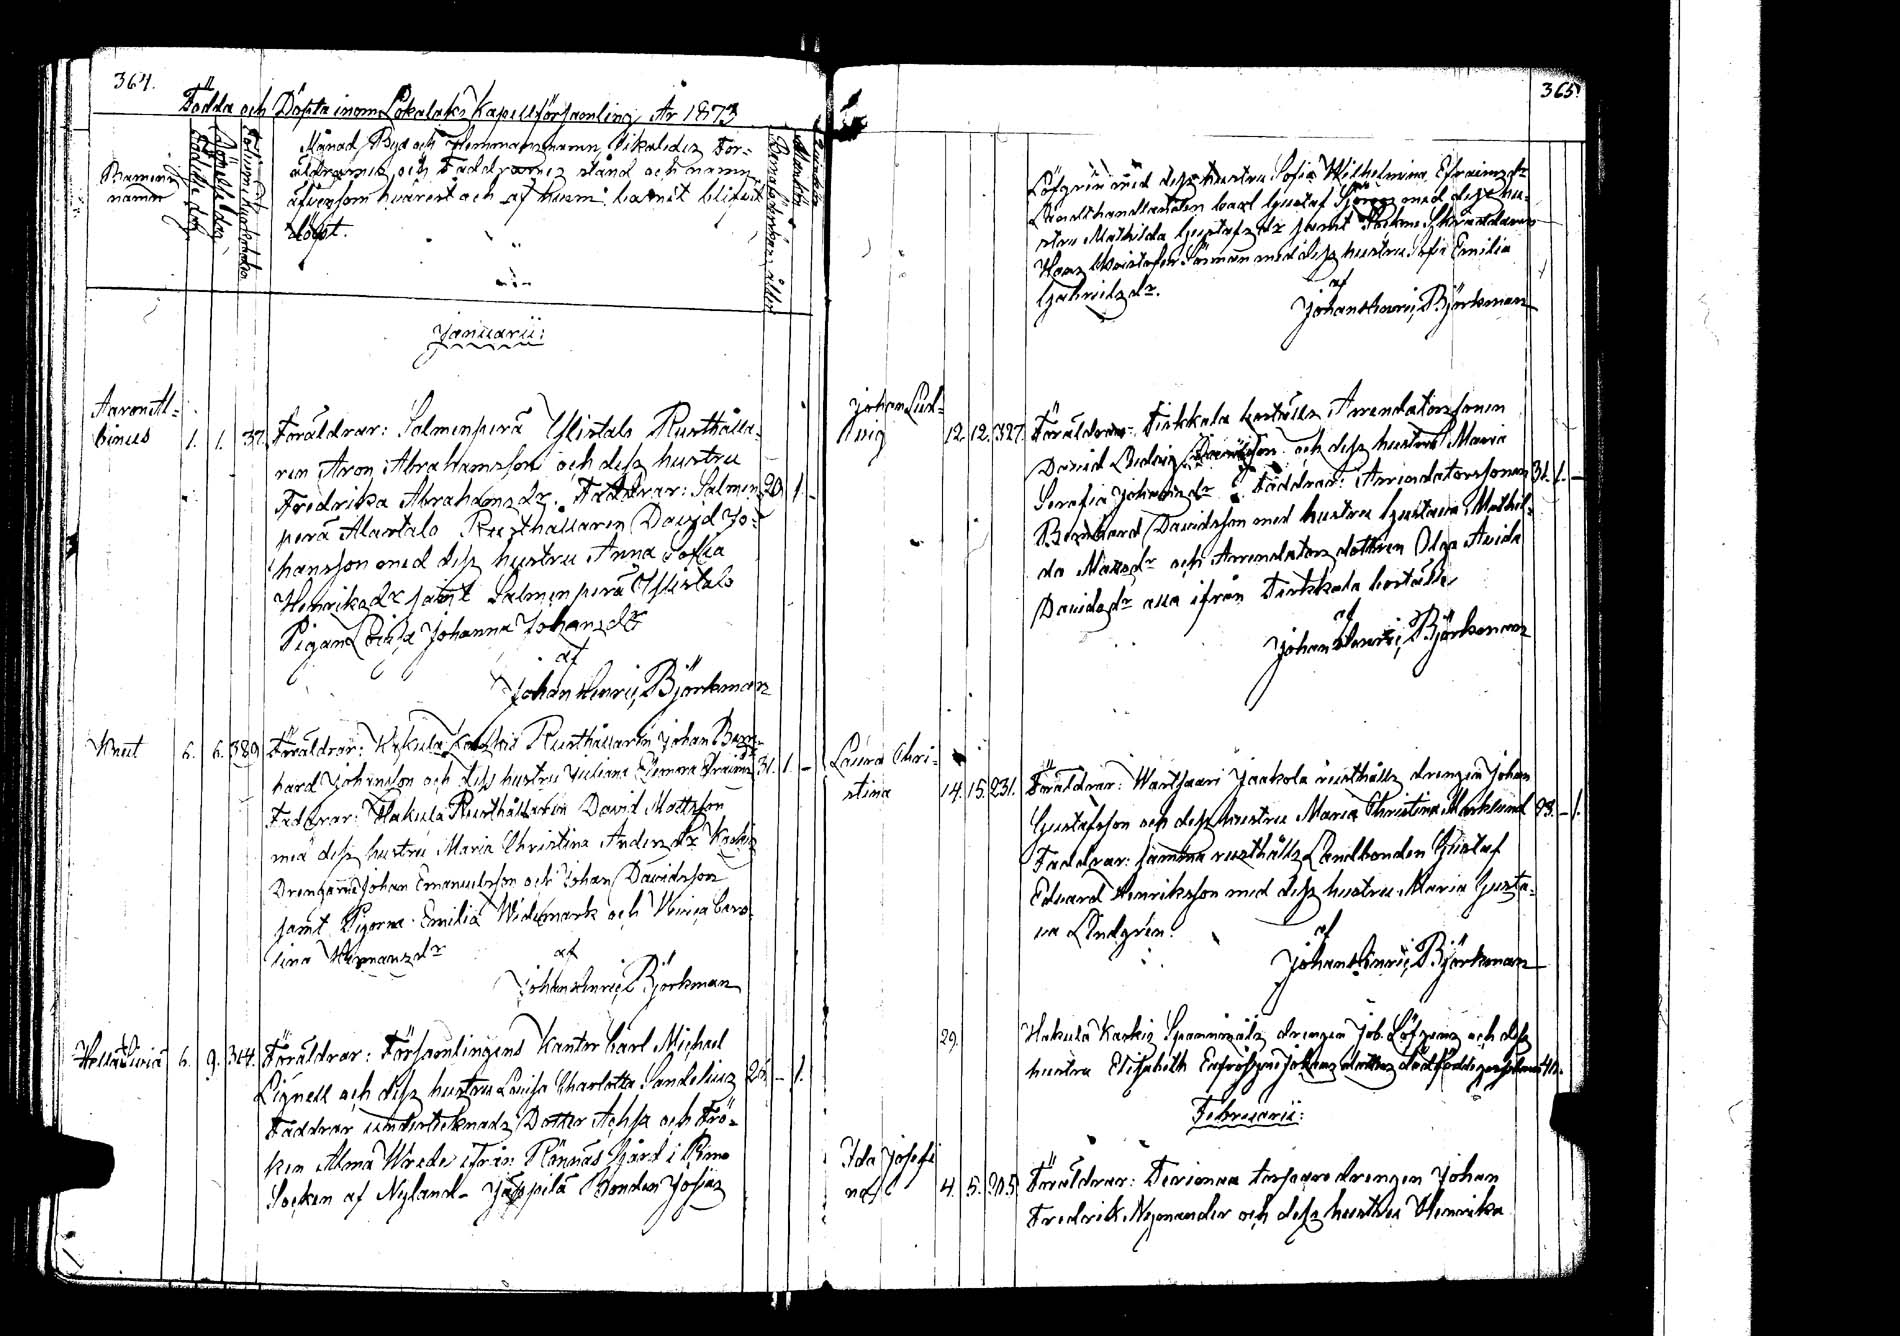 364.
Födda och Döpta inom Lokalaks Kapellförsamling År 1873
Barnens
namn
Födelse dag
Döpelse dag
Månad, Bys och Hemmansnamn, likaledes För-
äldrarnes och Faddrarnes stånd och namn
äfvensom hvarest och af hvem barnet blifvit
döpt.
Mankön
Qvinkön
Januarii:
Aaron Al-
binus 1. 1. 37. Föräldrar: Salmenperä Ylistalo Rusthålla-
ren Aron Abrahamsson och dess hustru
Fredrika Abrahamsdr. Faddrar: Salmen- 20. 1. -
perä Alastalo Rusthållaren David Jo-
hansson med dess hustru Anna Sofia
Henriksdr samt Salmenperä Ylistalo
Pigan Lovisa Johanna Johansdr
af
Johan Henric Björkman
Knut 6. 6. 389. Föräldrar: Kukula Kaskis Rusthållaren Johan Bern-
hard Johansson och dess hustru Juliana 31. 1. -
Faddrar: Hakula Rusthållaren David Mattsson
med dess hustru Maria Christina Andersdr Kaskis
Drengarne Johan Emanuelsson och Johan Davidsson
samt Pigorna Emilia Widemark och Caro-
lina Hermansdr
af
Johan Henric Björkman
Hella Siviä 6. 9. 314. Föräldrar: Församlingens Kantor Carl Michael
Lignell och dess hustru Lovisa Charlotta Sandelius 26. - 1.
Faddrar undertecknads Dotter och Frö-
ken Alma Wrede ifrån Rönnäs Gård i
Socken af Nyland - Jäppilä Bonden Josias
365.
Löfgrén med dess hustru Sofia Wilhelmina Efraimsdr
Landthandlanden Carl Gustaf med dess hu-
stru Mathilda Gustafsdr samt Sockne Skräddaren
Christofer med dess hustru Sofia Emilia
Gabrielsdr.
af
Johan Henric Björkman
Johan Lud-
vig 12. 12. 327. Föräldrar: Tirkkala boställs Arrendatorssonen
David Ludvig Davidsson och dess hustru Maria
Serafia Johansdr. Faddrar: Arrendatorssonen 31. 1. -
Bernhard Davidsson med hustru Gustava Mathil-
da Matsdr och Arrendatorsdottren Olga Avida
Davidsdr alla ifrån Tirkkala boställe
af
Johan Henric Björkman
Laura Chri-
stina 14. 15. 231. Föräldrar: Wartsaari Jaakola rusthålls drengen Johan
Gustafsson och dess hustru Maria Christina Marklund 23. - 1.
Faddrar: samma rusthålls Landbonden Gustaf
Eduard Henriksson med dess hustru Maria Gusta-
va Lindgrén.
af
Johan Henric Björkman
29. Hakula Kaskis drengen Job Löfgrens och dess
hustru Elisabeth Eufrosyne Johans dotters dödfödde 40.
Februarii:
Ida Josefi-
na 4. 5. 205. Föräldrar: torparedrengen Johan
Fredrik Nymander och dess hustru Henrika